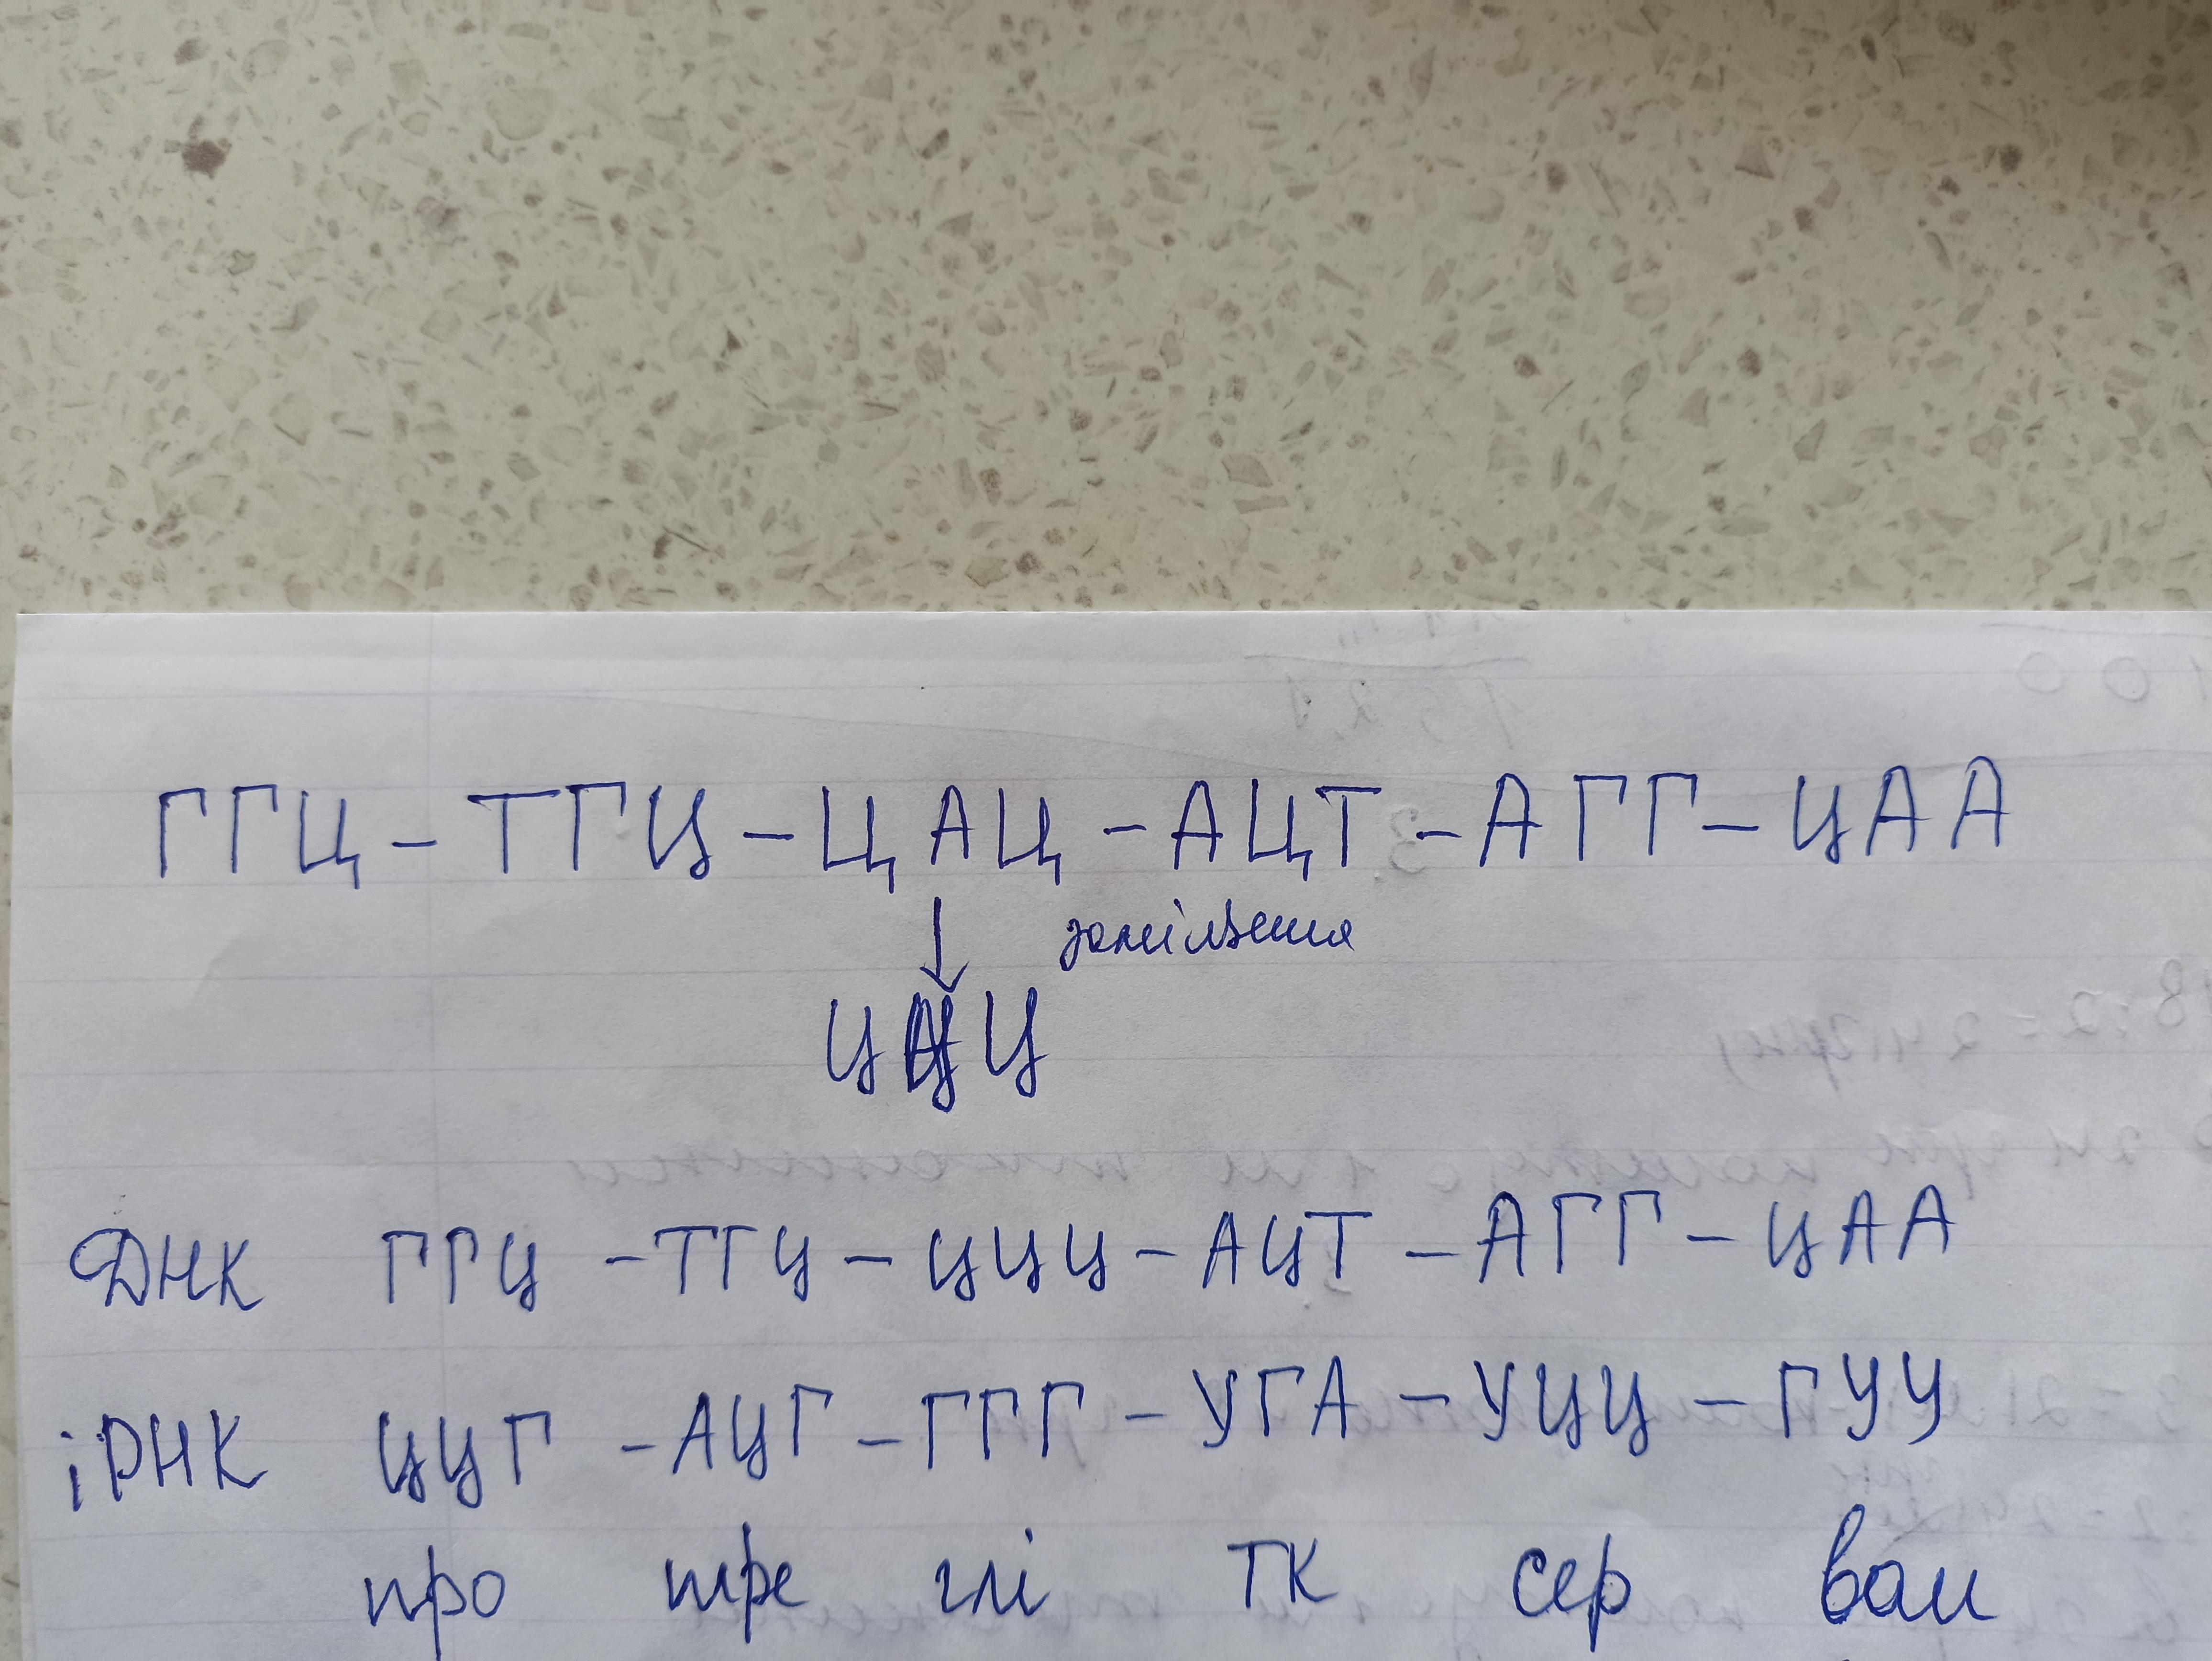 ГГЦ - ТГЦ - ЦАЦ - АЦТ - АГГ - ЦАА
заміщення
ЦЦЦ
ДНК ГГЦ - ТГЦ - ЦЦЦ - АЦТ - АГГ - ЦАА
іРНК ЦЦГ - АЦГ - ГГГ - УГА - УЦЦ - ГУУ
про тре глі ТК сер вал